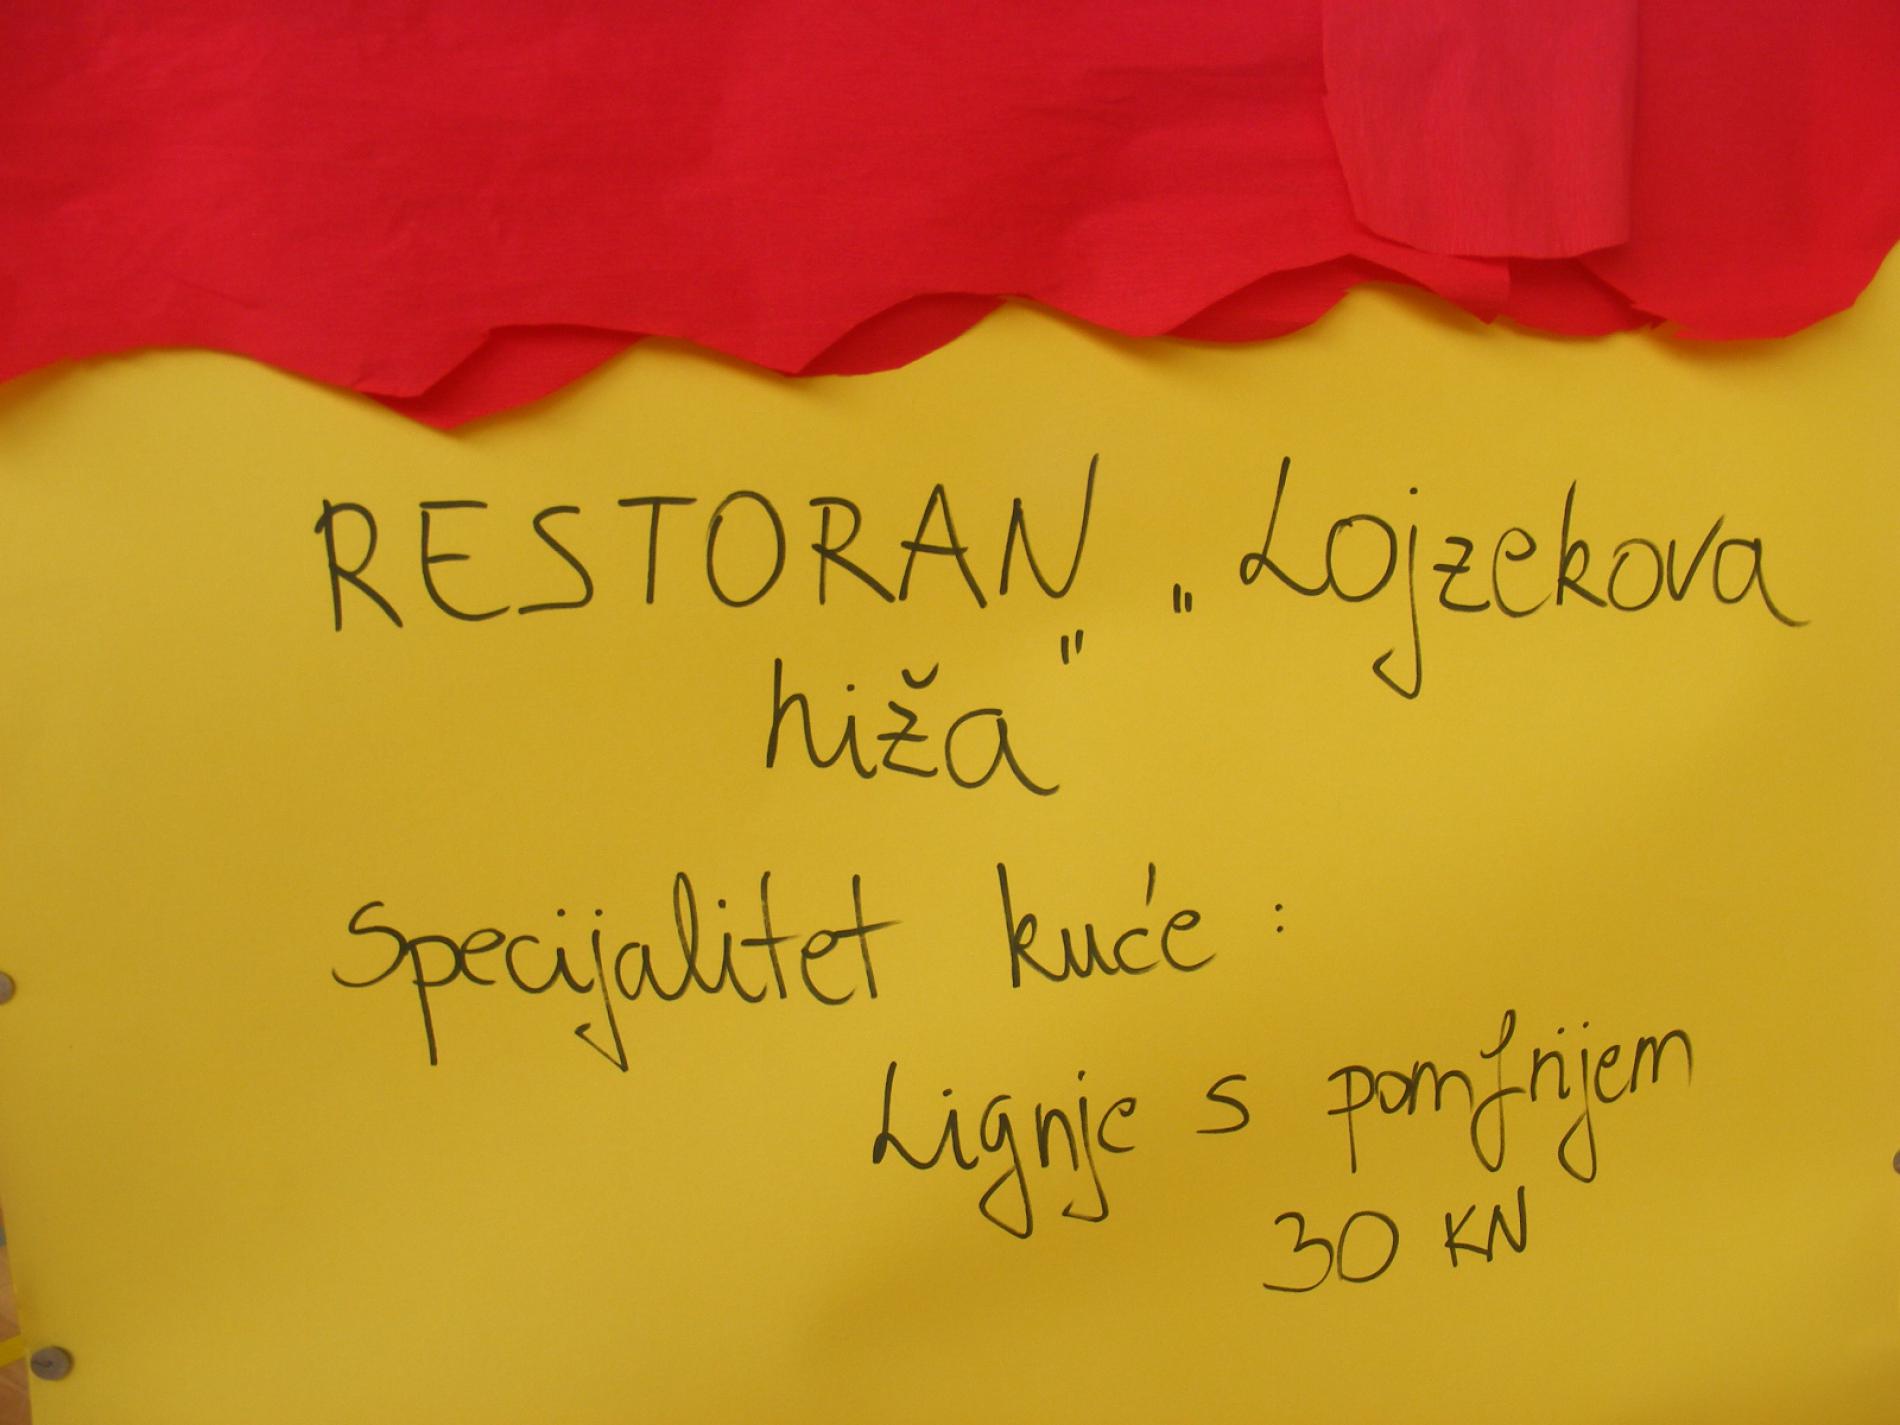 RESTORAN „Lojzekova
hiža"
Specijalitet kuće:
Lignje s pomfrijem
30 KN